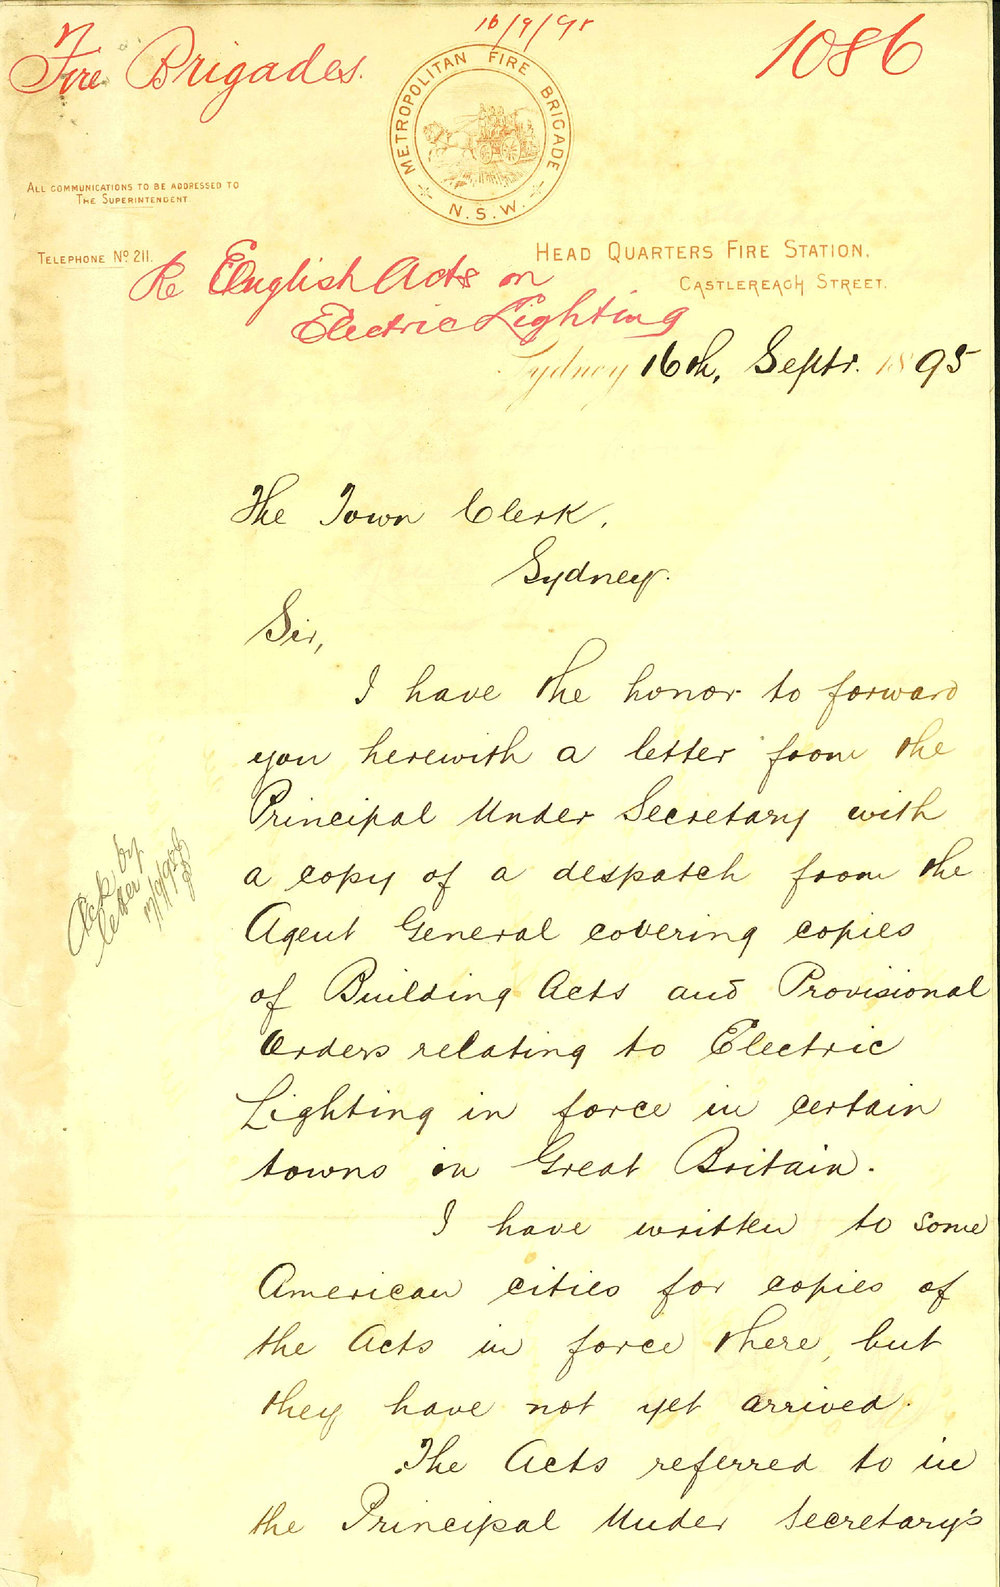 16/9/95
Fire Brigades.
1086
METROPOLITAN FIRE BRIGADE
N.S.W.
ALL COMMUNICATIONS TO BE ADDRESSED TO
THE SUPERINTENDENT
TELEPHONE No 211.
HEAD QUARTERS FIRE STATION,
CASTLEREAGH STREET.
Re English Acts on
Electric Lighting
Sydney 16th, Septr. 1895
The Town Clerk,
Sydney.
Sir,
I have the honor to forward
you herewith a letter from the
Principal Under Secretary with
a copy of a despatch from the
Agent General covering copies
of Building Acts and Provisional
Orders relating to Electric
Lighting in force in certain
towns in Great Britain.
I have written to some
American cities for copies of
the Acts in force there, but
they have not yet arrived.
The Acts referred to in
the Principal Under Secretary's
Ack by
letter